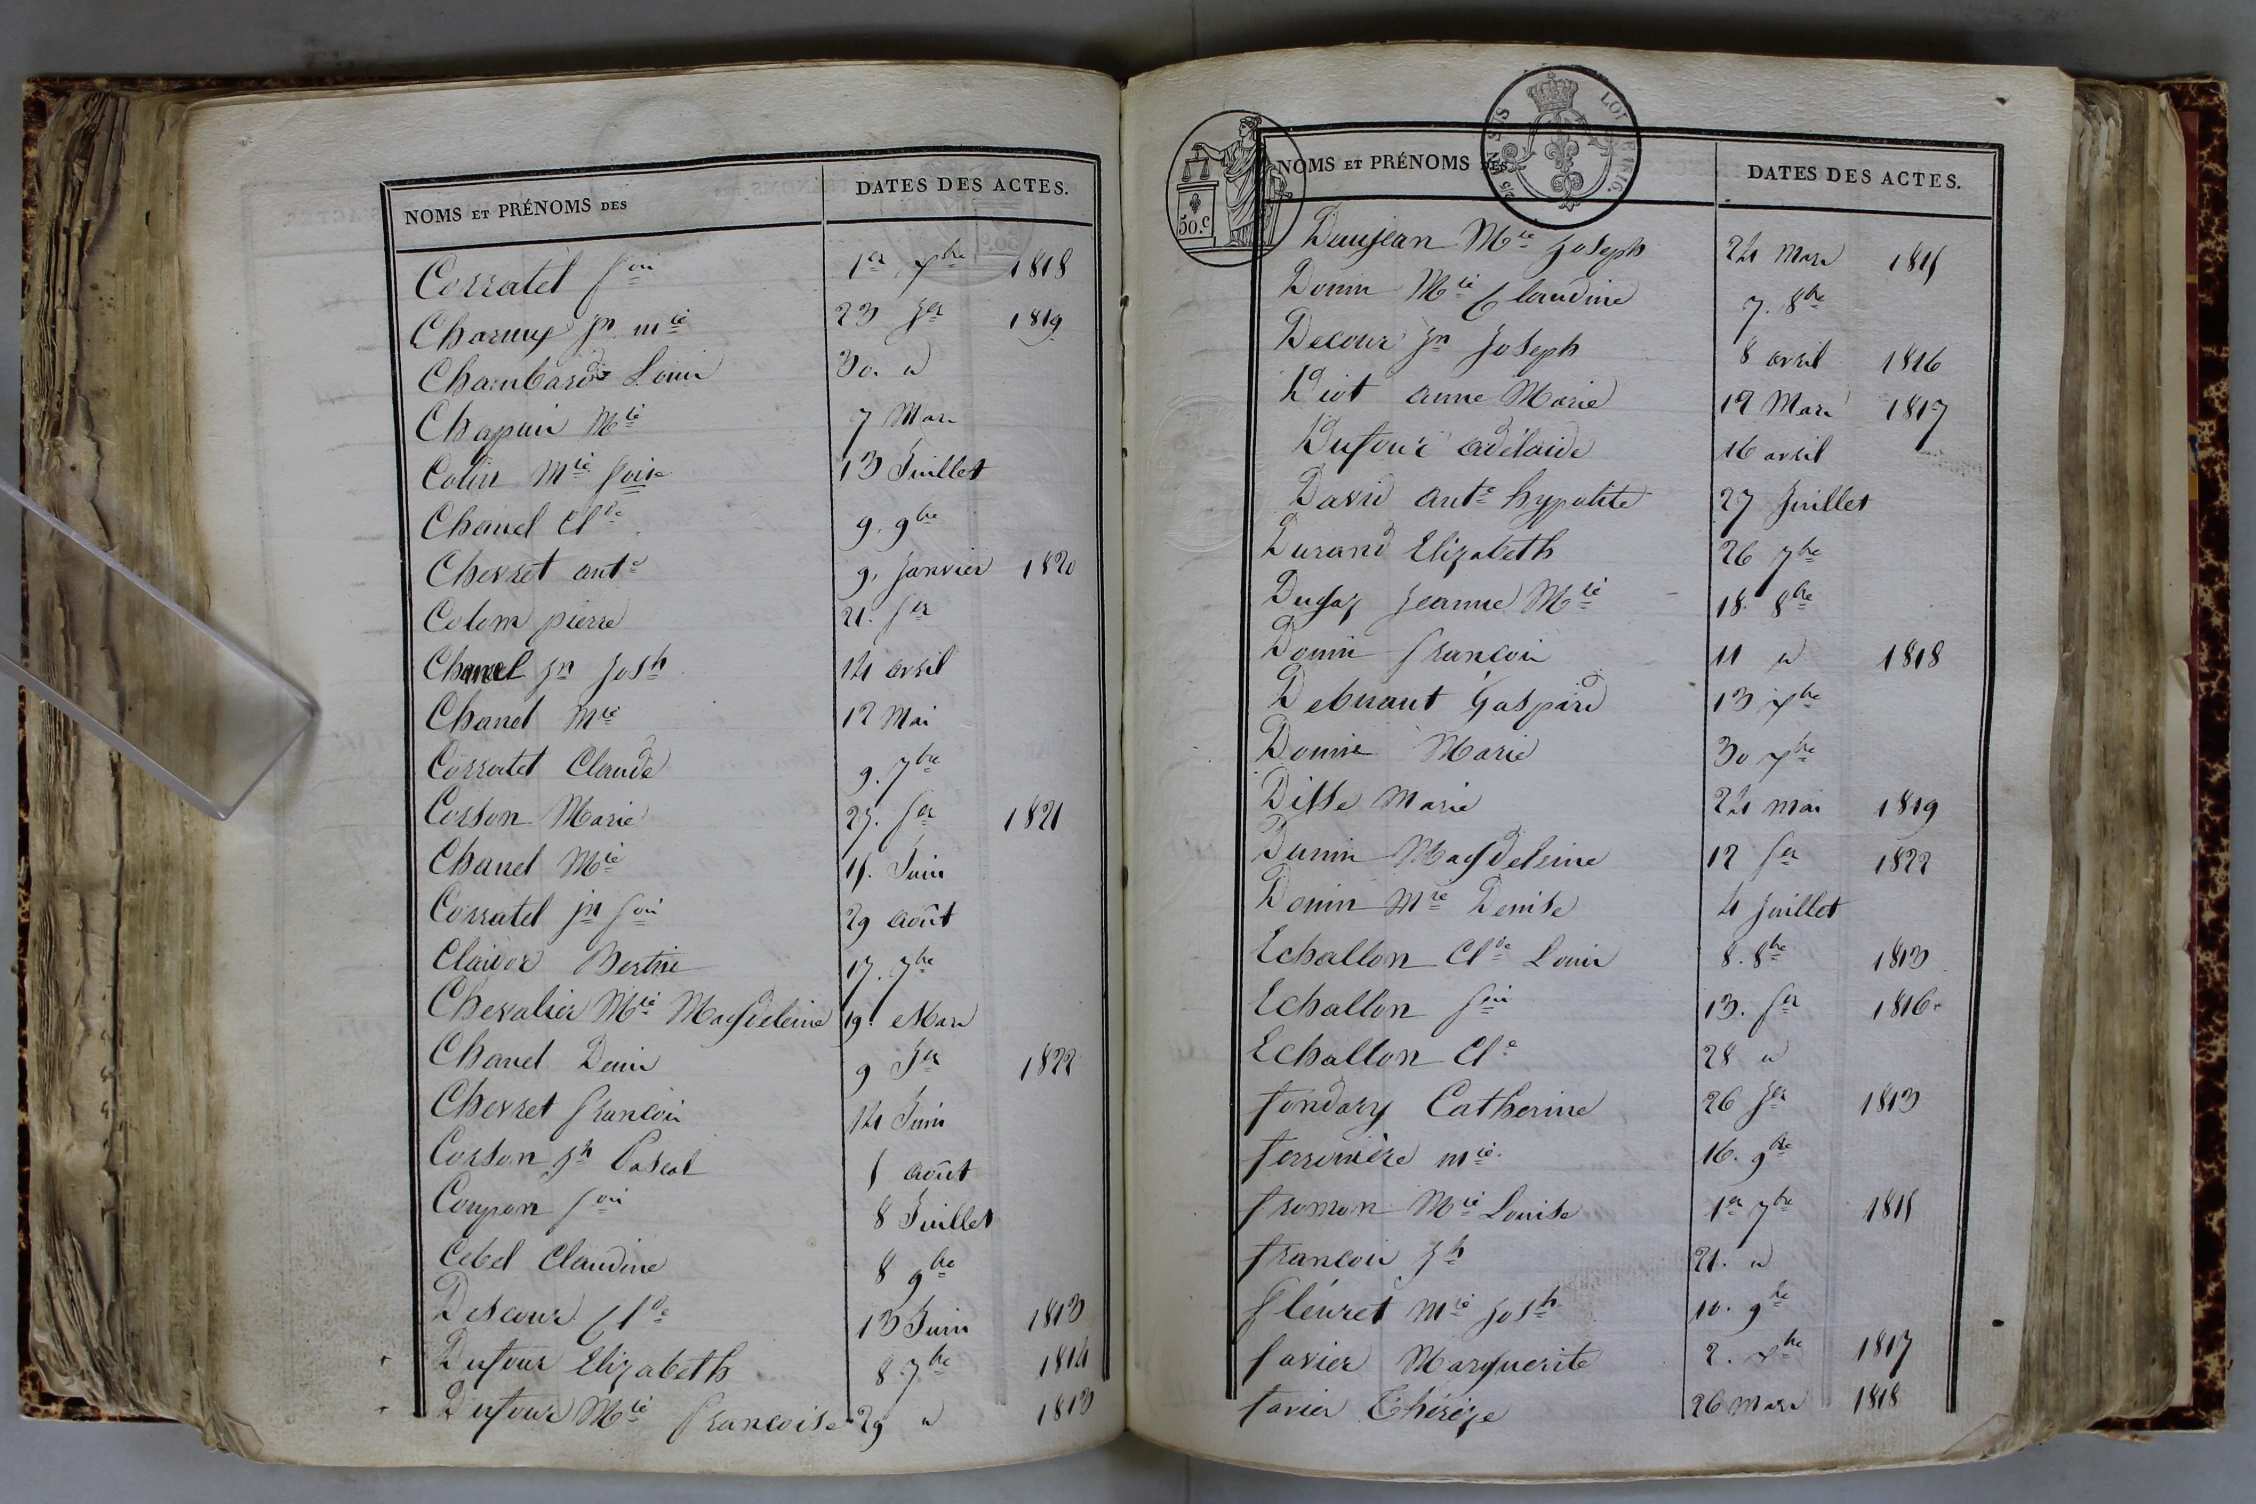 NOMS ET PRÉNOMS DES DATES DES ACTES.
Corratel fois 1er xbre 1818
Charmy jn mie 23 Jer 1819
Chambard Louis 30. "
Chapuis Mie 7 Mars
Colin Mie foise 13 Juillet
Chanel Clde 9. 9bre
Chevret ante 9. Janvier 1820
Colom pierre 21. fer
Chanel jn josh 14 avril
Chanel Mie 12 Mai
Corratel Claude 9. 7bre
Corson Marie 27. fer 1821
Chanel Mie 15. Juin
Corratel jn fois 29 août
Bertin 17. 7bre
Chevalier Mie Magdeleine 19. Mars
Chanel Denis 9 Jer 1822
Chevret françois 14 Juin
Corson jh Pascal 5 août
Coupon fois 8 Juillet
Cebel Claudine 8 9bre
Descour Clde 13 Juin 1813
Dufour Elizabeth 8. 7bre 1814
Dufour Mie françoise 29 " 1813
50.C
LOI DE 1816.
NOMS ET PRÉNOMS DES DATES DES ACTES.
Daujean Mie joseph 24 Mars 1815
Donin Mie Claudine 7. 8bre
Decour jn joseph 8 avril 1816
Diot anne Marie 12 Mars 1817
Dufour adélaide 16 avril
David ante hypolite 27 juillet
Durand Elizabeth 26 7bre
Jeanne Mie 18. 8bre
Donin françois 11 " 1818
Gaspard 13 xbre
Donin Marie 30 xbre
Disse Marie 24 mai 1819
Danin Magdeleine 12 fer 1822
Donin Mie Denise 4 juillet
Echallon Clde Louis 8. 8bre 1813
Echallon fois 13. fer 1816
Echallon Cle 28 "
fondary Catherine 26 jer 1813
ferronière mie 16. 9bre
fromon Mie Louise 1er 7bre 1815
françois jh 21. "
fleuret mie josh 10. 9bre
favier Marguerite 2. xbre 1817
favier Thérèze 26 mars 1818